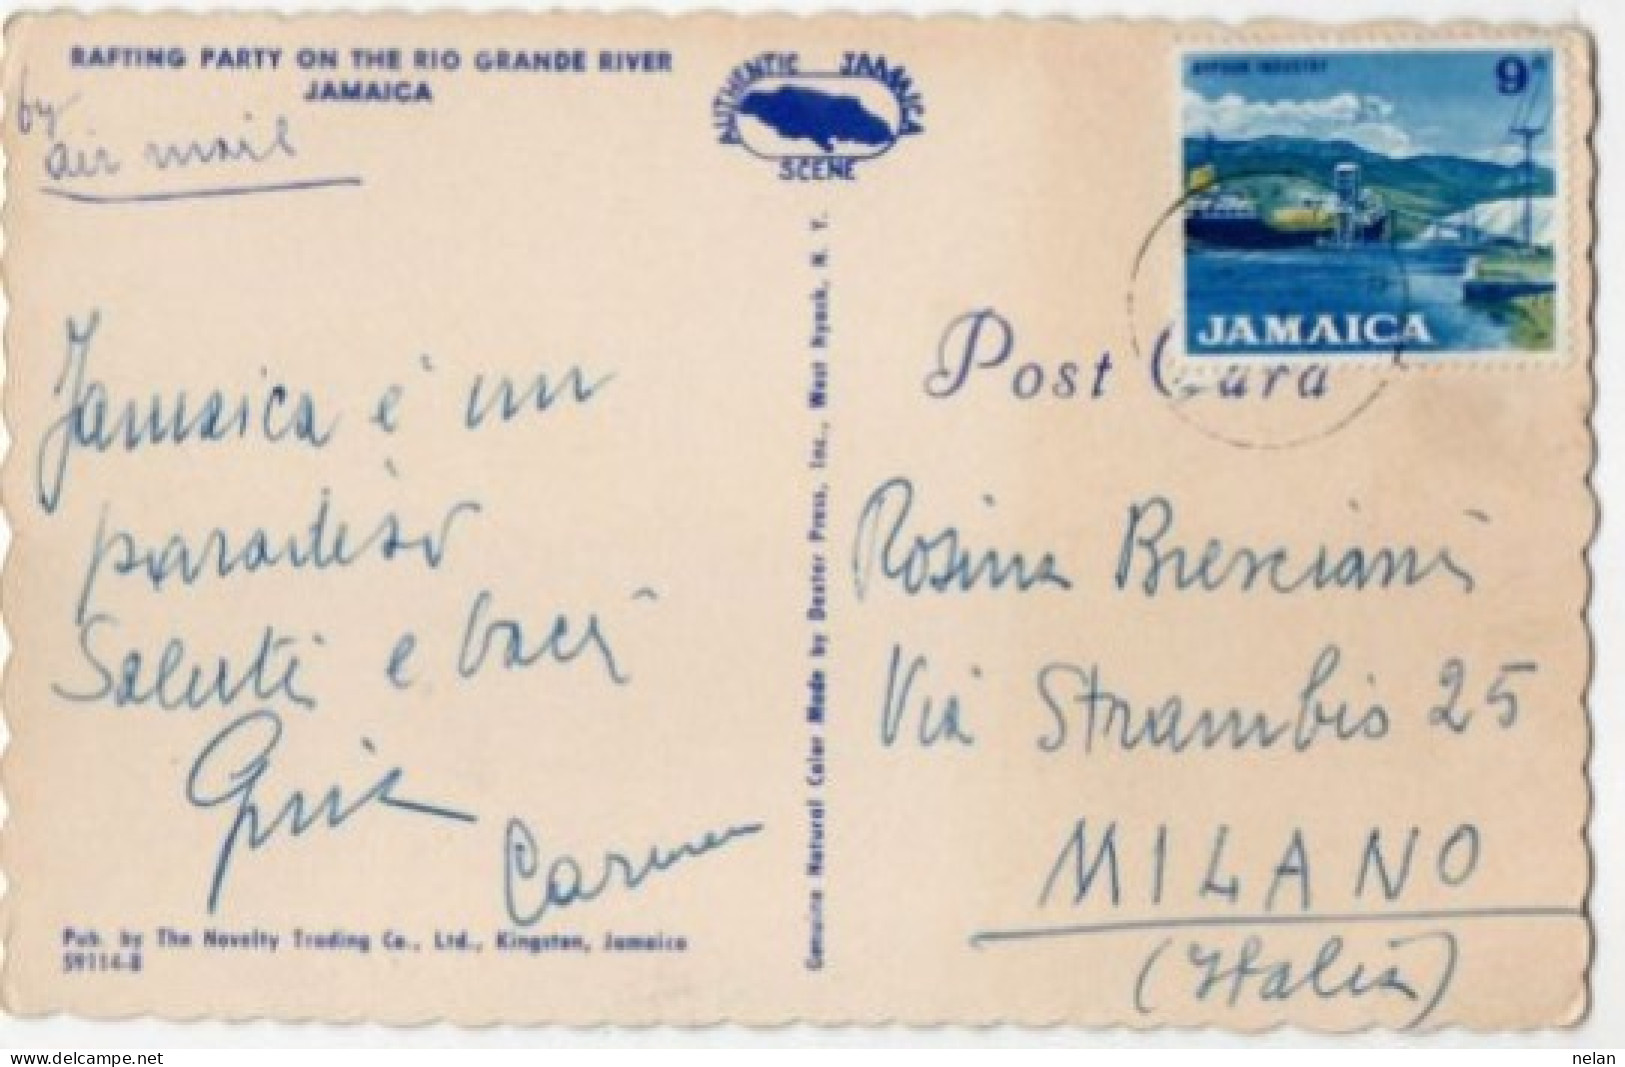 RAFTING PARTY ON THE RIO GRANDE RIVER
JAMAICA
by
air mail
AUTHENTIC JAMAICA
SCENE
GYPSUM INDUSTRY 9d
JAMAICA
Post Card
Jamaica é un
paradiso
Saluti e baci
Carmen
Pub. by The Novelty Trading Co., Ltd., Kingston, Jamaica
59114-B
Genuine Natural Color Made by Dexter Press, Inc., West Nyack, N. Y.
Rosina Bresciani
Via Strambio 25
MILANO
(Italia)
www.delcampe.net
nelan